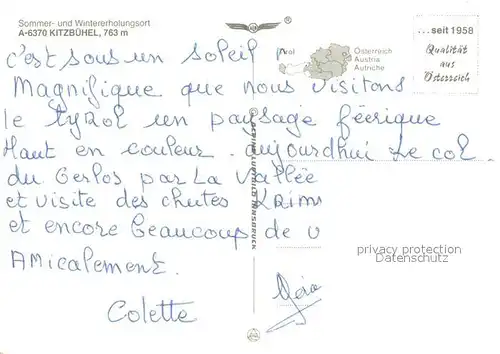 Sommer- und Wintererholungsort
A-6370 KITZBÜHEL, 763 m
®
... seit 1958
Qualität
aus
Österreich
Österreich
Austria
Autriche
c'est sous un soleil
Magnifique que nous visitons
le tyRol un paysage féerique
Haut en couleur. aujourdhui Le col
du Gerlos par La Vallée
et visite des chutes KRim
et encore beaucoup de v
Amicalement.
Colette
privacy protection
Datenschutz